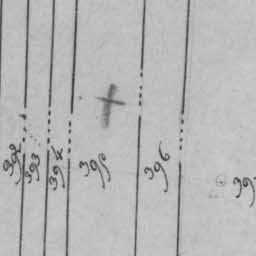 392
393
394
395
396